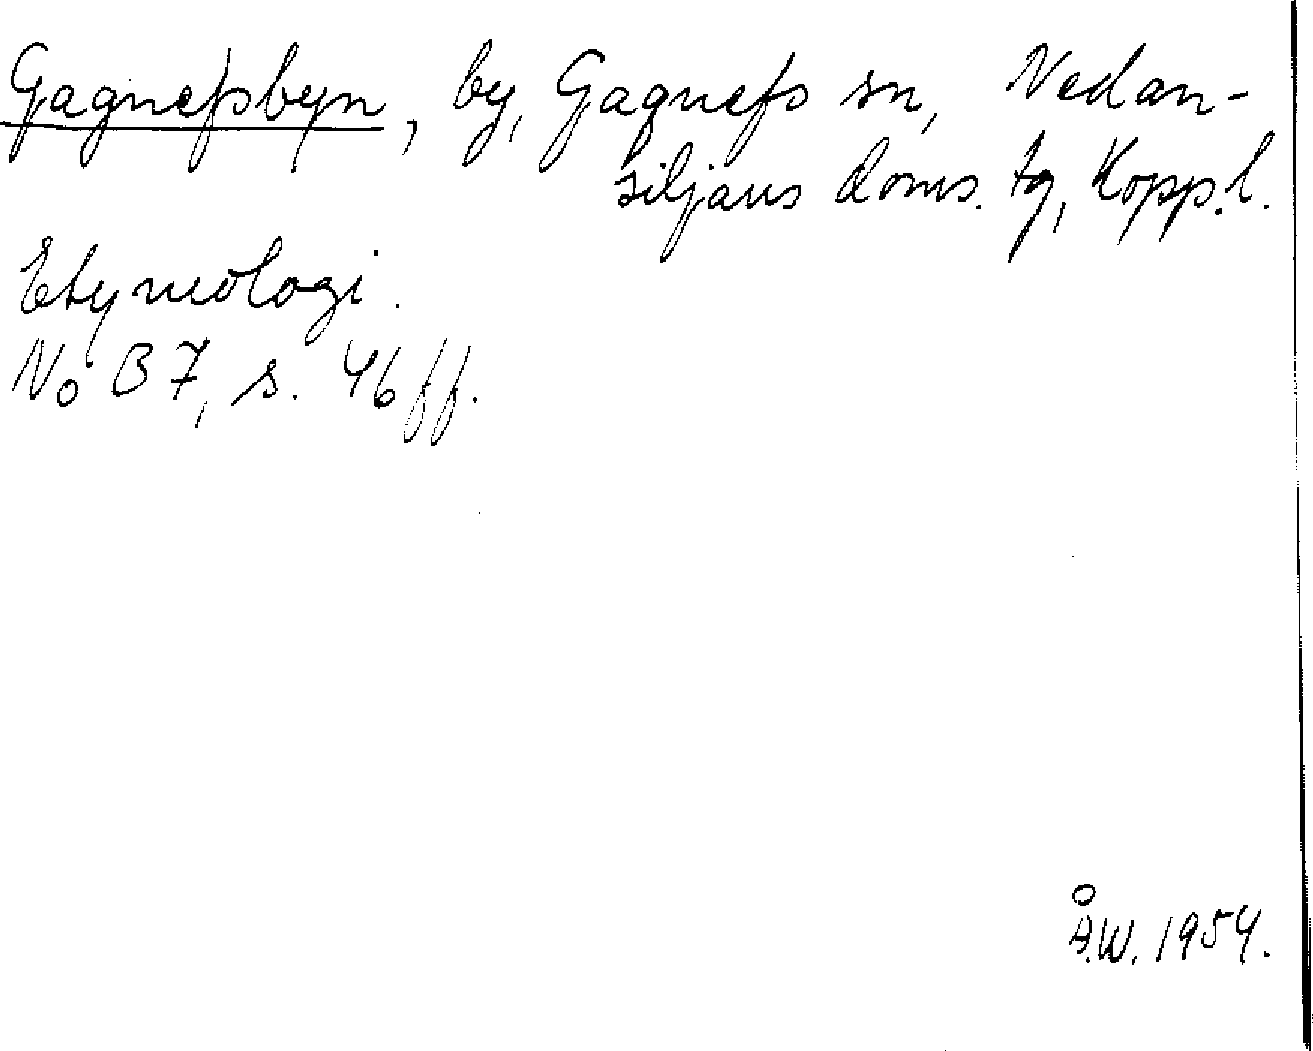 Gagnefsbyn, by, Gagnefs sn, Nedan-
siljans doms. tg, Kopp.l.
Etymologi.
No B 7, s. 46 ff.
Å.W. 1954.